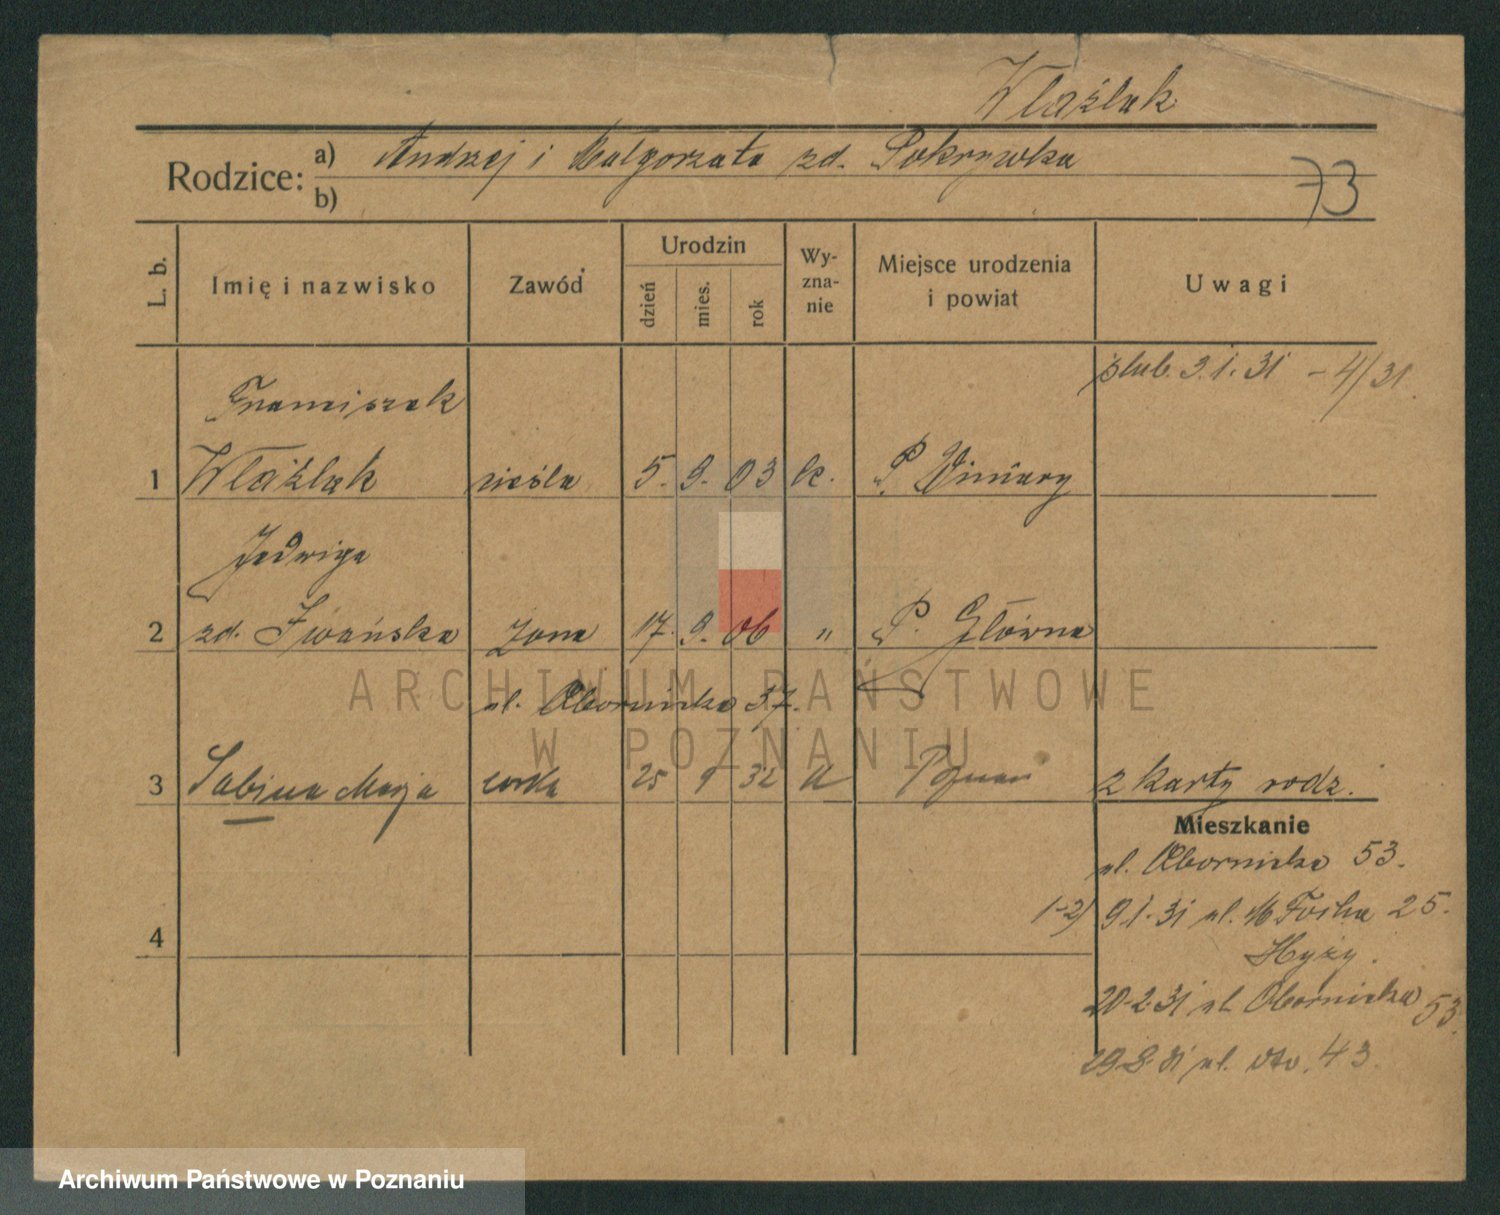 Wlaźlak
Rodzice: a) Andrzej i Małgorzata zd. Pokrzywka
b)
73
L. b.
Imię i nazwisko
Zawód
Urodzin
dzień
mies.
rok
Wy-
zna-
nie
Miejsce urodzenia
i powiat
Uwagi
ślub. 3.1.31 - 4/31
Franciszek
1 Wlaźlak cieśla 5. 9. 03 k. P. Winiary
Jadwiga
2 zd. Iwańska żona 17. 9. 06 " P. Główna
ul. Obornicka 37.
3 Sabina Marja córka 25 9 32 k Poznań z karty rodz.
Mieszkanie
ul. Obornicka 53.
1-2) 9.1.31 ul. M Focha 25.
Hyży.
20.2.31 ul. Obornicka 53.
29.8.31 ul. dto. 43.
4
ARCHIWUM PAŃSTWOWE
W POZNANIU
Archiwum Państwowe w Poznaniu